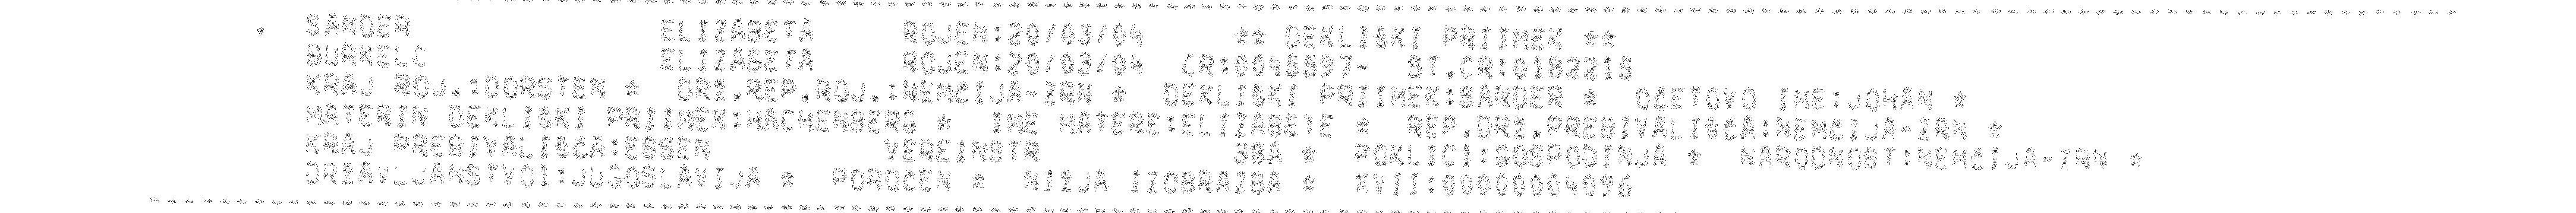 SANDER ELIZABETA ROJEN:20/03/04 ** DEKLISKI PRIIMEK **
BURKELC ELIZABETA ROJEN:20/03/04 CR:0045897- ST.CR:0182215
KRAJ ROJ.:DORSTEN * DRZ.REP.ROJ.:NEMCIJA-ZRN * DEKLISKI PRIIMEK:SANDER * OCETOVO IME:JOHAN *
MATERIN DEKLISKI PRIIMEK:HACHENBERG * IME MATERE:ELIZABETE * REP.DRZ.PREBIVALISCA:NEMCIJA-ZRN *
KRAJ PREBIVALISCA:ESSEN VEREINSTR 38A * POKLICI:GOSPODINJA * NARODNOST:NEMCIJA-ZRN *
DRZAVLJANSTVOI:JUGOSLAVIJA * POROCEN * NIZJA IZOBRAZBA * XVII:0000004096